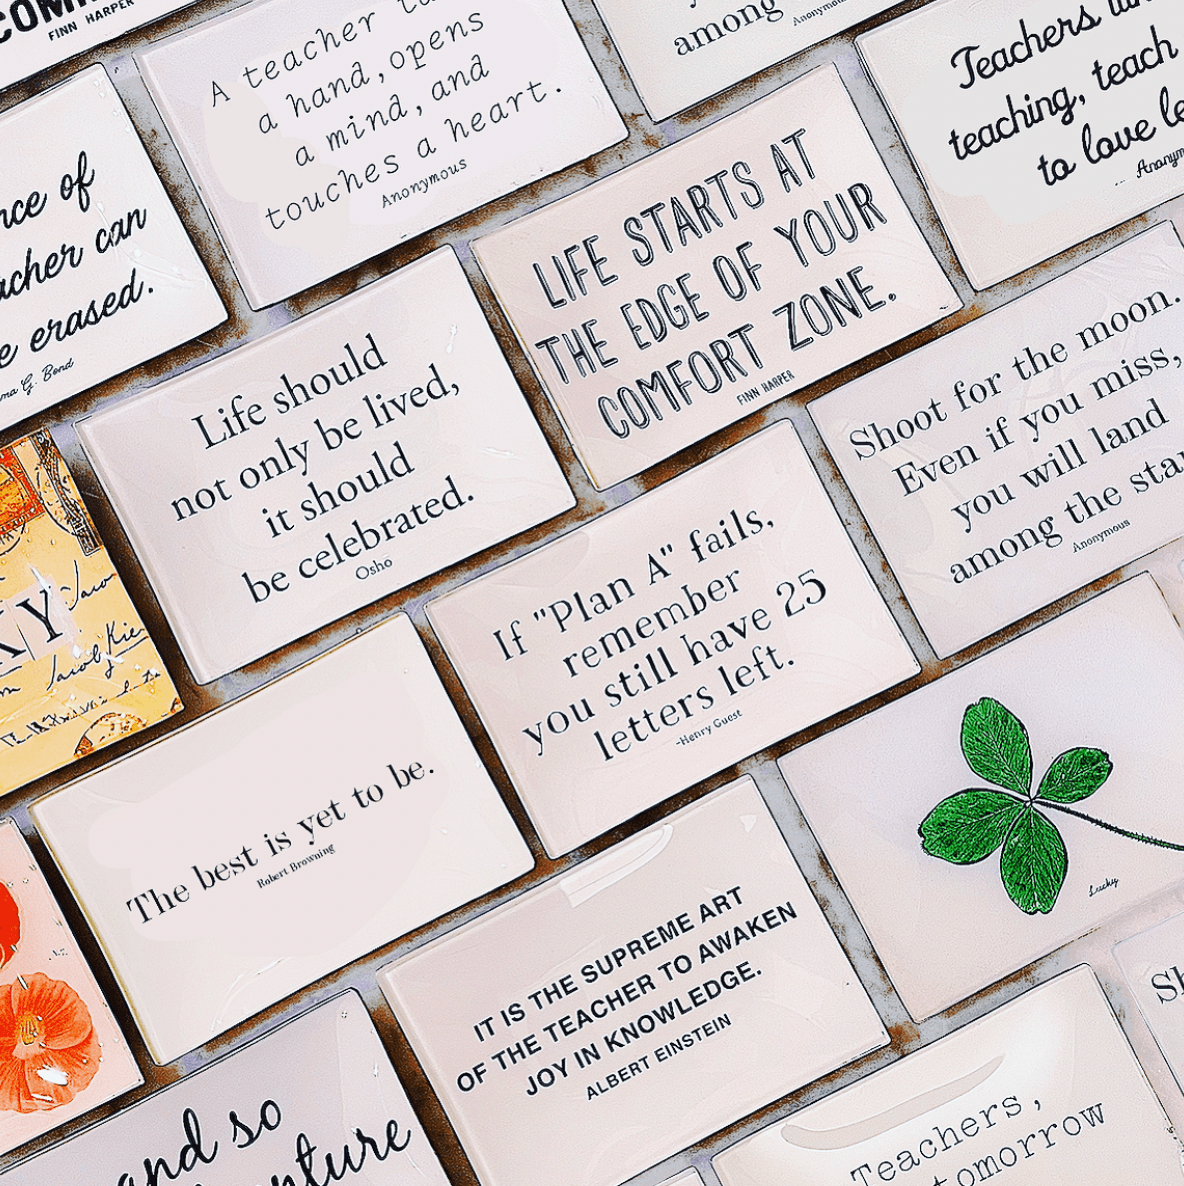 FINN HARPER
A teacher
a hand, opens
a mind, and
touches a heart.
Anonymous
among
Anonymous
Teachers
teaching, teach
to love
of
can
erased.
G. Bond
LIFE STARTS AT
THE EDGE OF YOUR
COMFORT ZONE.
FINN HARPER
Life should
not only be lived,
it should
be celebrated.
Osho
Shoot for the moon.
Even if you miss,
you will land
among the
Anonymous
If "Plan A" fails,
remember
you still have 25
letters left.
-Henry Guest
The best is yet to be.
Robert Browning
Lucky
IT IS THE SUPREME ART
OF THE TEACHER TO AWAKEN
JOY IN KNOWLEDGE.
ALBERT EINSTEIN
and so
Teachers,
tomorrow